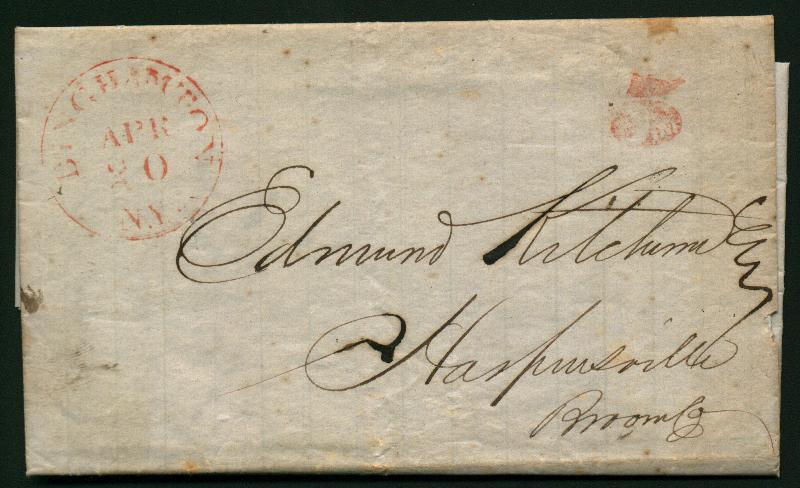 BINGHAMTON
APR
20
N.Y.
5
Edmund Kitchum Esq
Harpursville
Broom Co